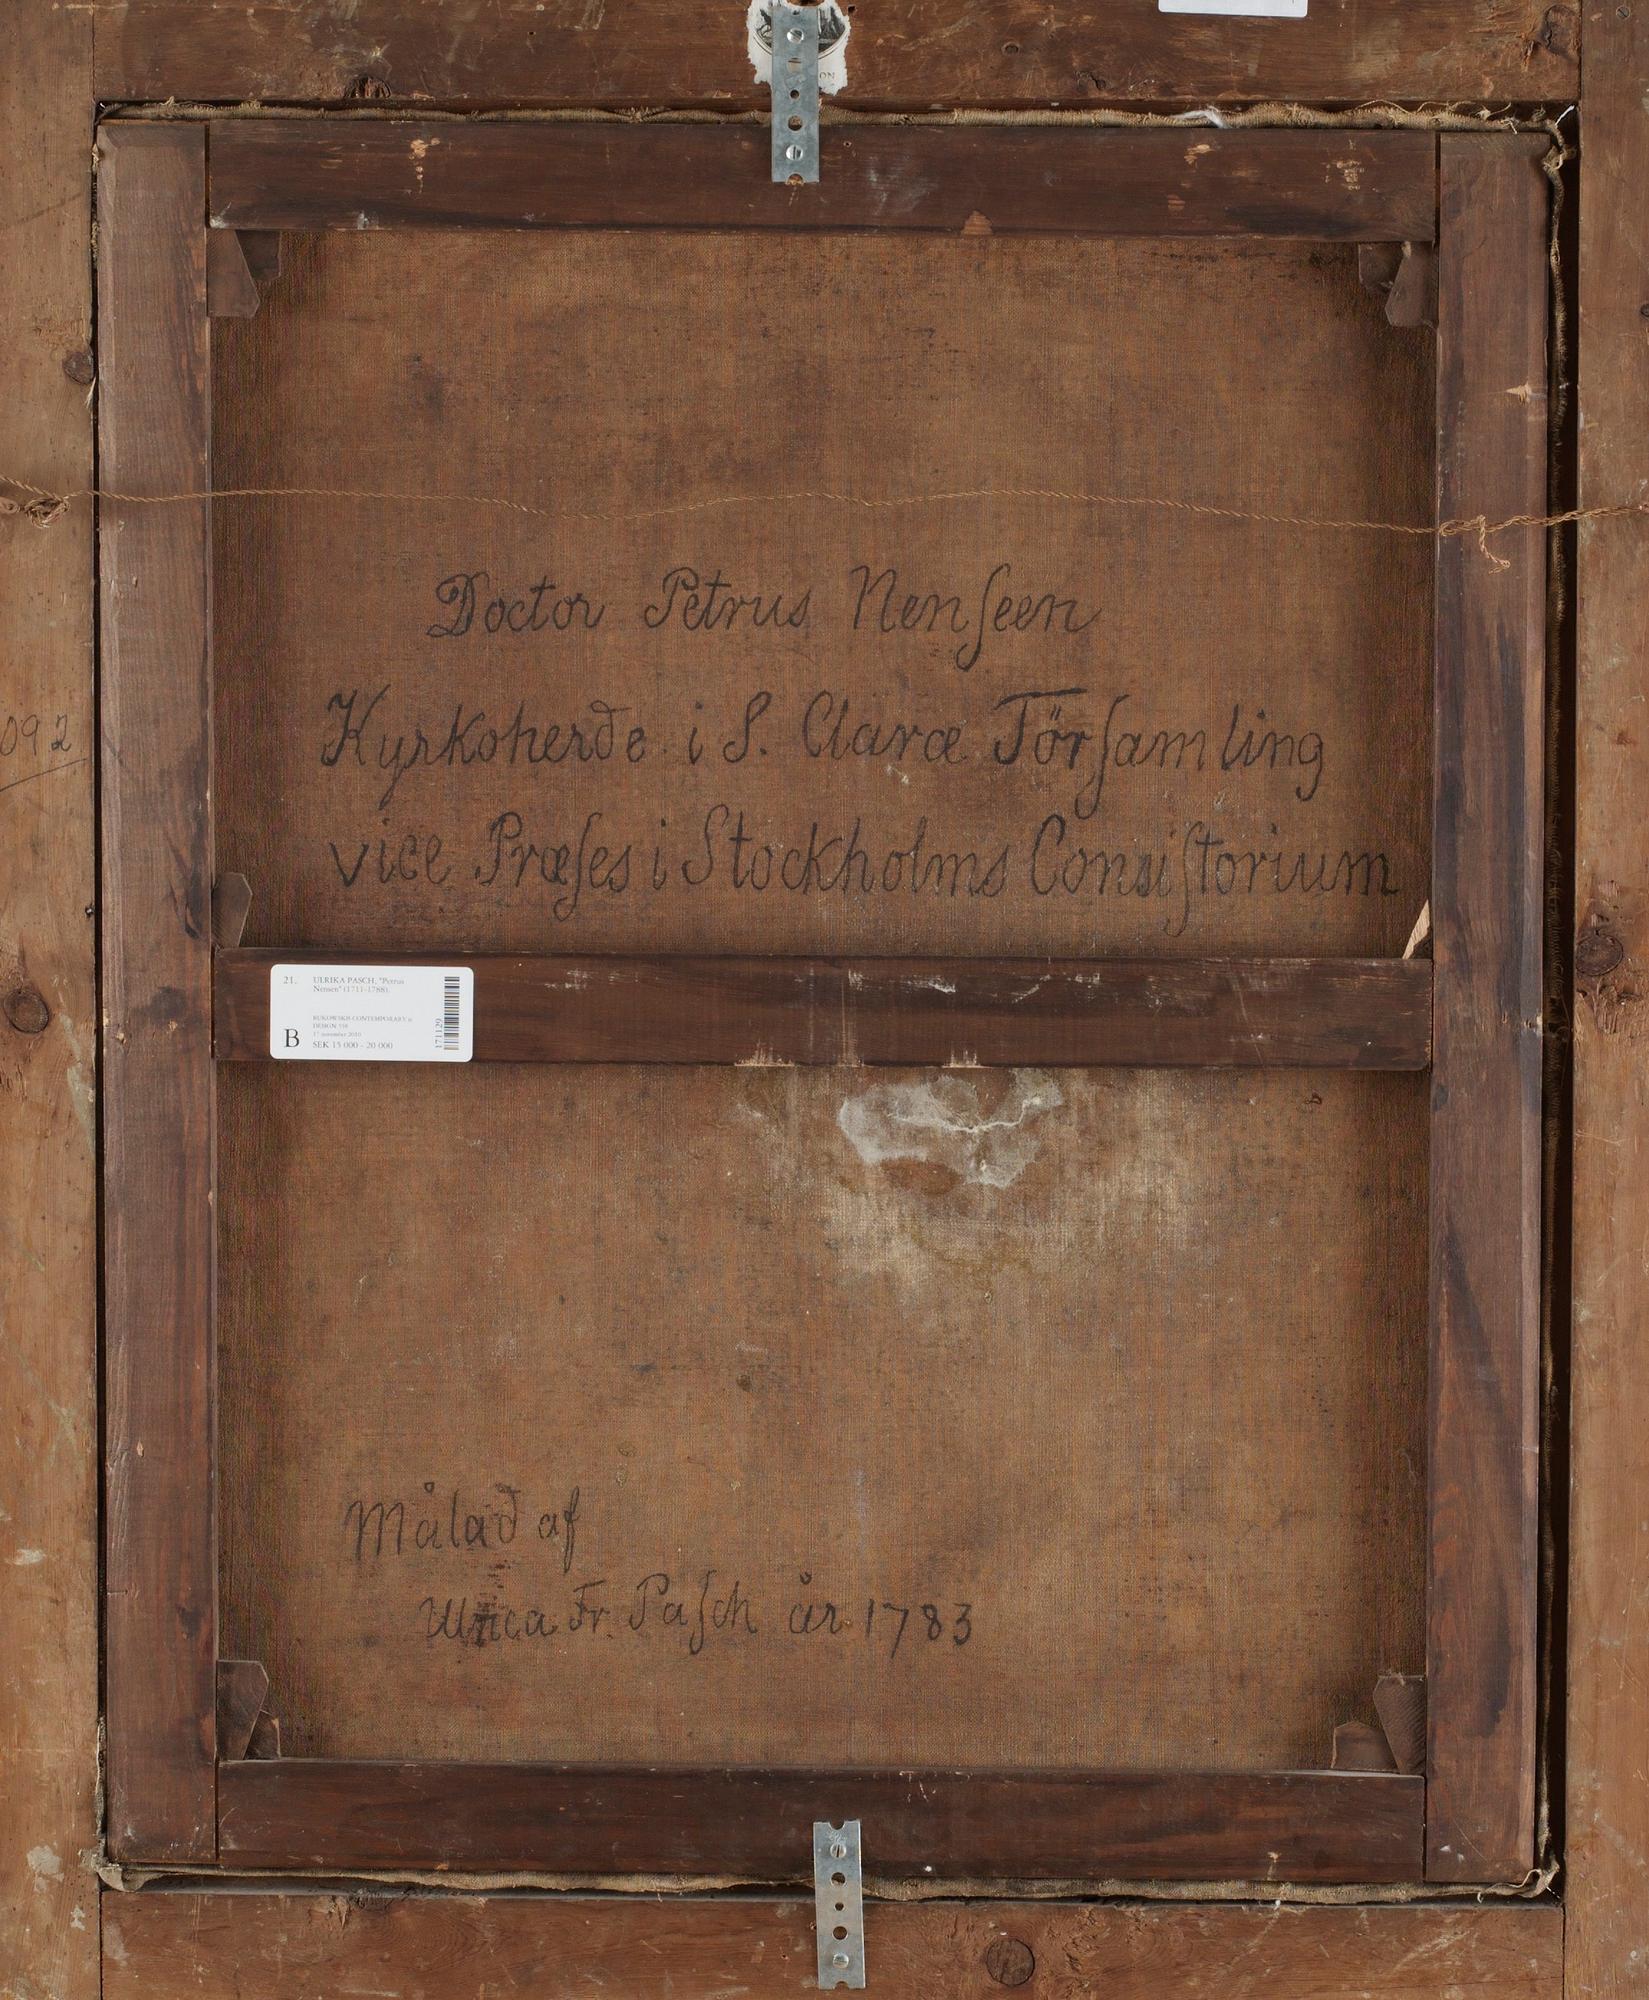 ON
Doctor Petrus Nenſeen
092
Kyrkoherde i S. Claræ Församling
vice Præſes i Stockholms Consiſtorium
21. ULRIKA PASCH, "Petrus
Nensen" (1711-1788).
BUKOWSKIS CONTEMPORARY &
DESIGN 558
17 november 2010
B SEK 15 000 - 20 000
171129
Målad af
Ulrica Fr. Paſch år 1783